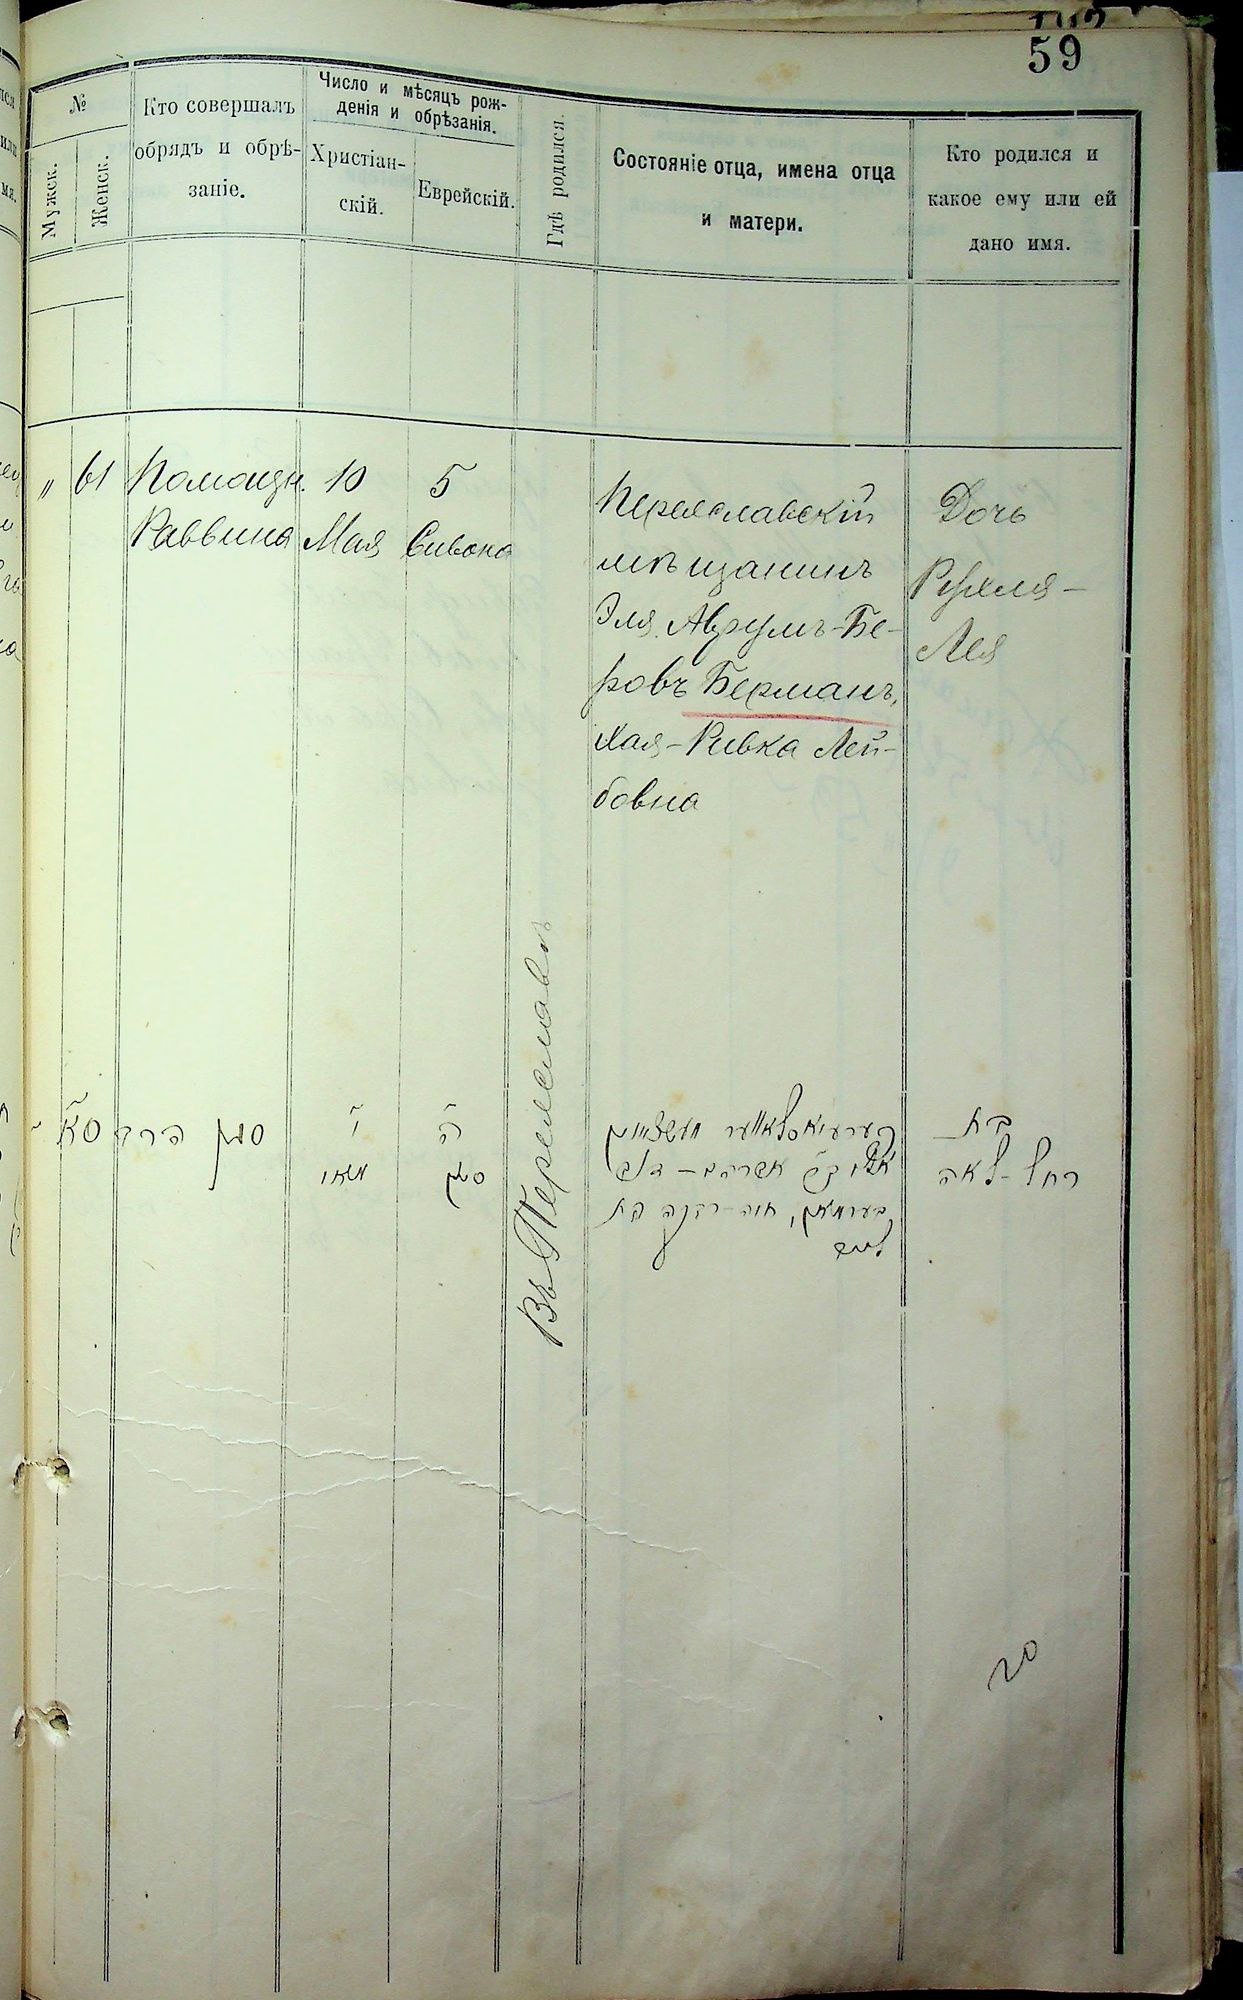 59
№
Мужск.
Женск.
Кто совершалъ
обрядъ и обрѣ-
заніе.
Число и мѣсяцъ рож-
денія и обрѣзанія.
Христіан-
скій.
Еврейскій.
Гдѣ родился.
Состояніе отца, имена отца
и матери.
Кто родился и
какое ему или ей
дано имя.
" 61
Помощн.
Раввина
10
Мая
5
Сивона
Въ Переяславѣ
Переяславскій
мѣщанинъ
Эля Аврумъ-Бе-
ровъ Берманъ,
Хая-Ривка Лей-
бовна
Дочь
Рухля-
Лея
סא
סגן הרב
י
מאי
ה
סיון
בערמאן, חיה-רבקה בת
לייב
בת
רחל-לאה
20